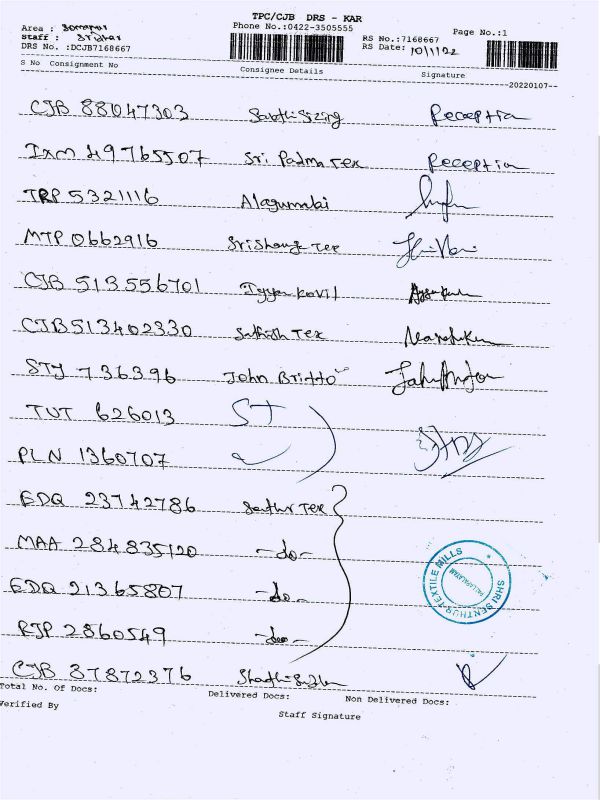 TPC/CJB DRS - KAR
Area : Somanur Phone No.:0422-3505555 Page No.:1
Staff : Sridhar RS No.:7168667
DRS No. :DCJB7168667 RS Date: 10/1/22
S No Consignment No Consignee Details Signature
20220107
CJB 881047303 Sakthi Sizing Reception
IXM 49765507 Sri Padma Tex Reception
TRP 5321116 Alagumalai
MTP 0662916
CJB 513556701 Iyyan Kovil
CJB513402330 Sathish Tex
STJ 736396 John Britto
TUT 626013 ST
PLN 1360707
EDQ 23742786 Tex
MAA 284835120 -do-
EDQ 21365807 -do-
RJP 2860549 -do-
SHRI SENTHUR TEXTILE MILLS
CJB 87872376
Total No. Of Docs: Delivered Docs: Non Delivered Docs:
Verified By Staff Signature